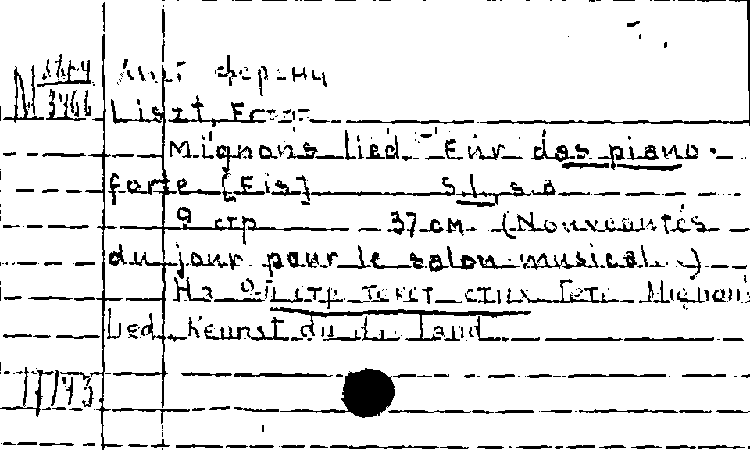 M 3466 Лист Ференц
Liszt, Franz
Mignons lied. Für das piano-
forte [Fis] S.l., s.a.
9 стр 37 см (Nouveautés
du jour pour le salon musical.)
На 9-й стр текст стих Гете Mignons
Lied Kennst du da land
17743